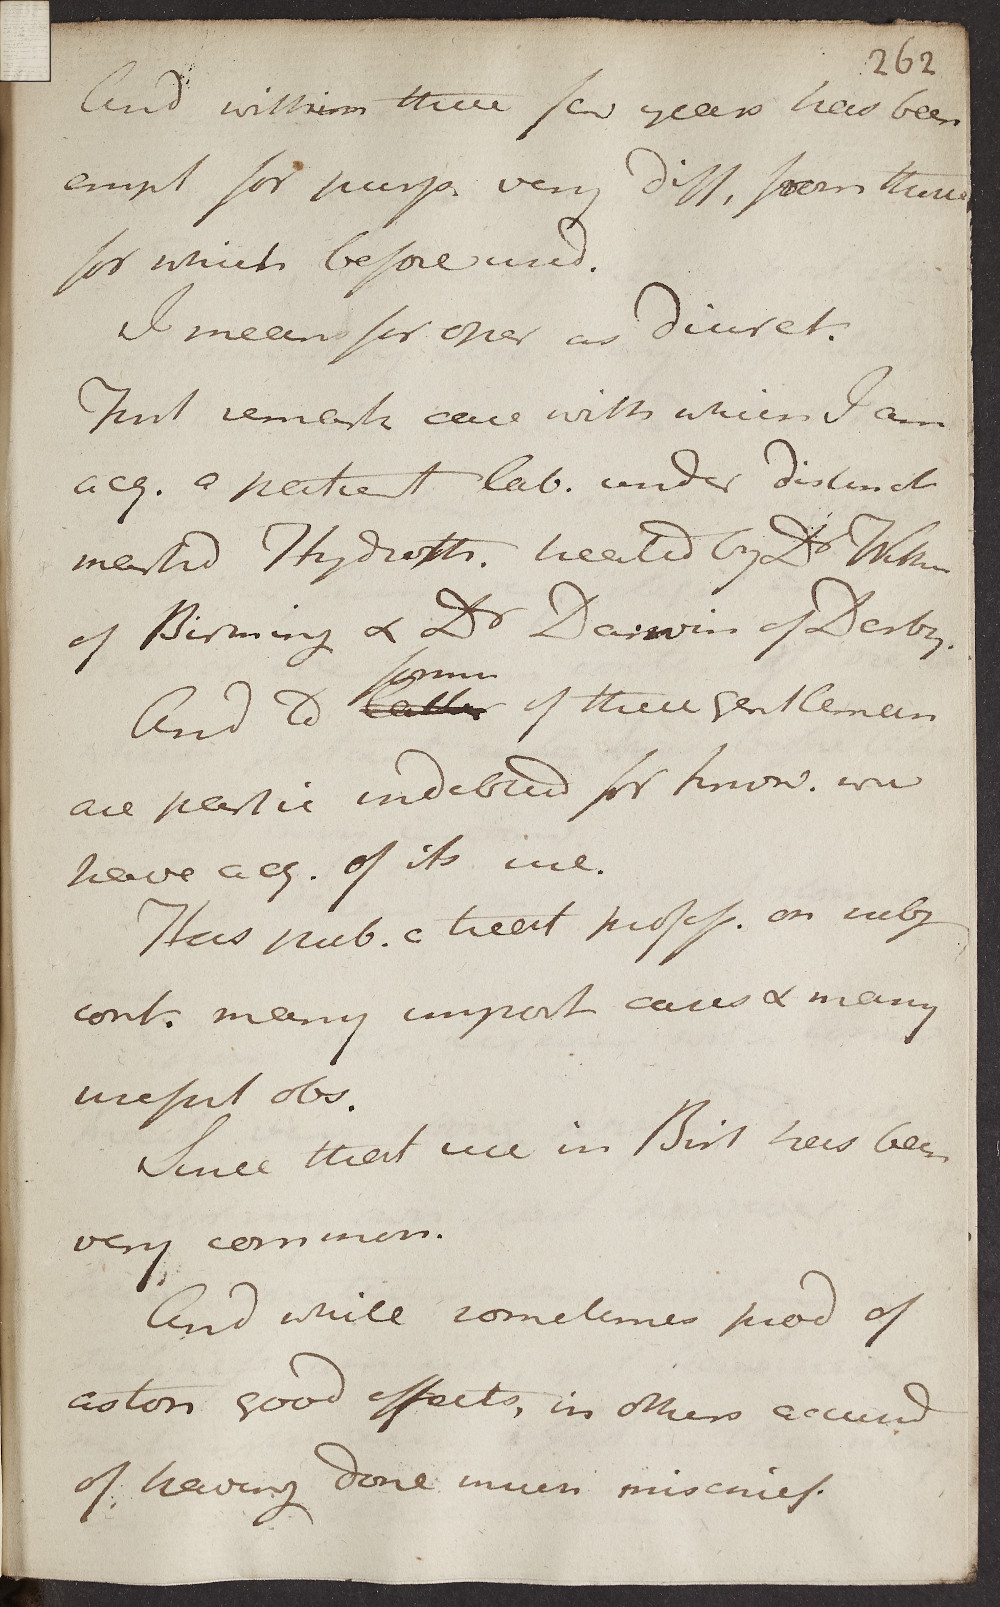 262
And within these few years has been
empl for purp. very diff, from those
for which before used.
I mean for oper as Diuret.
First remark case with which I am
acq. a patient lab. under distinct
marked Hydroth. treated by Dr
of Birming & Dr Darwin of Derby.
former
And to latter of these gentlemen
are partic indebted for know. we
have acq. of its use.
Has pub. a treat profess. on subj
cont. many import cases & many
useful obs.
Since that use in Brit has been
very common.
And while sometimes prod of
aston good effects, in others accused
of having done much mischief.